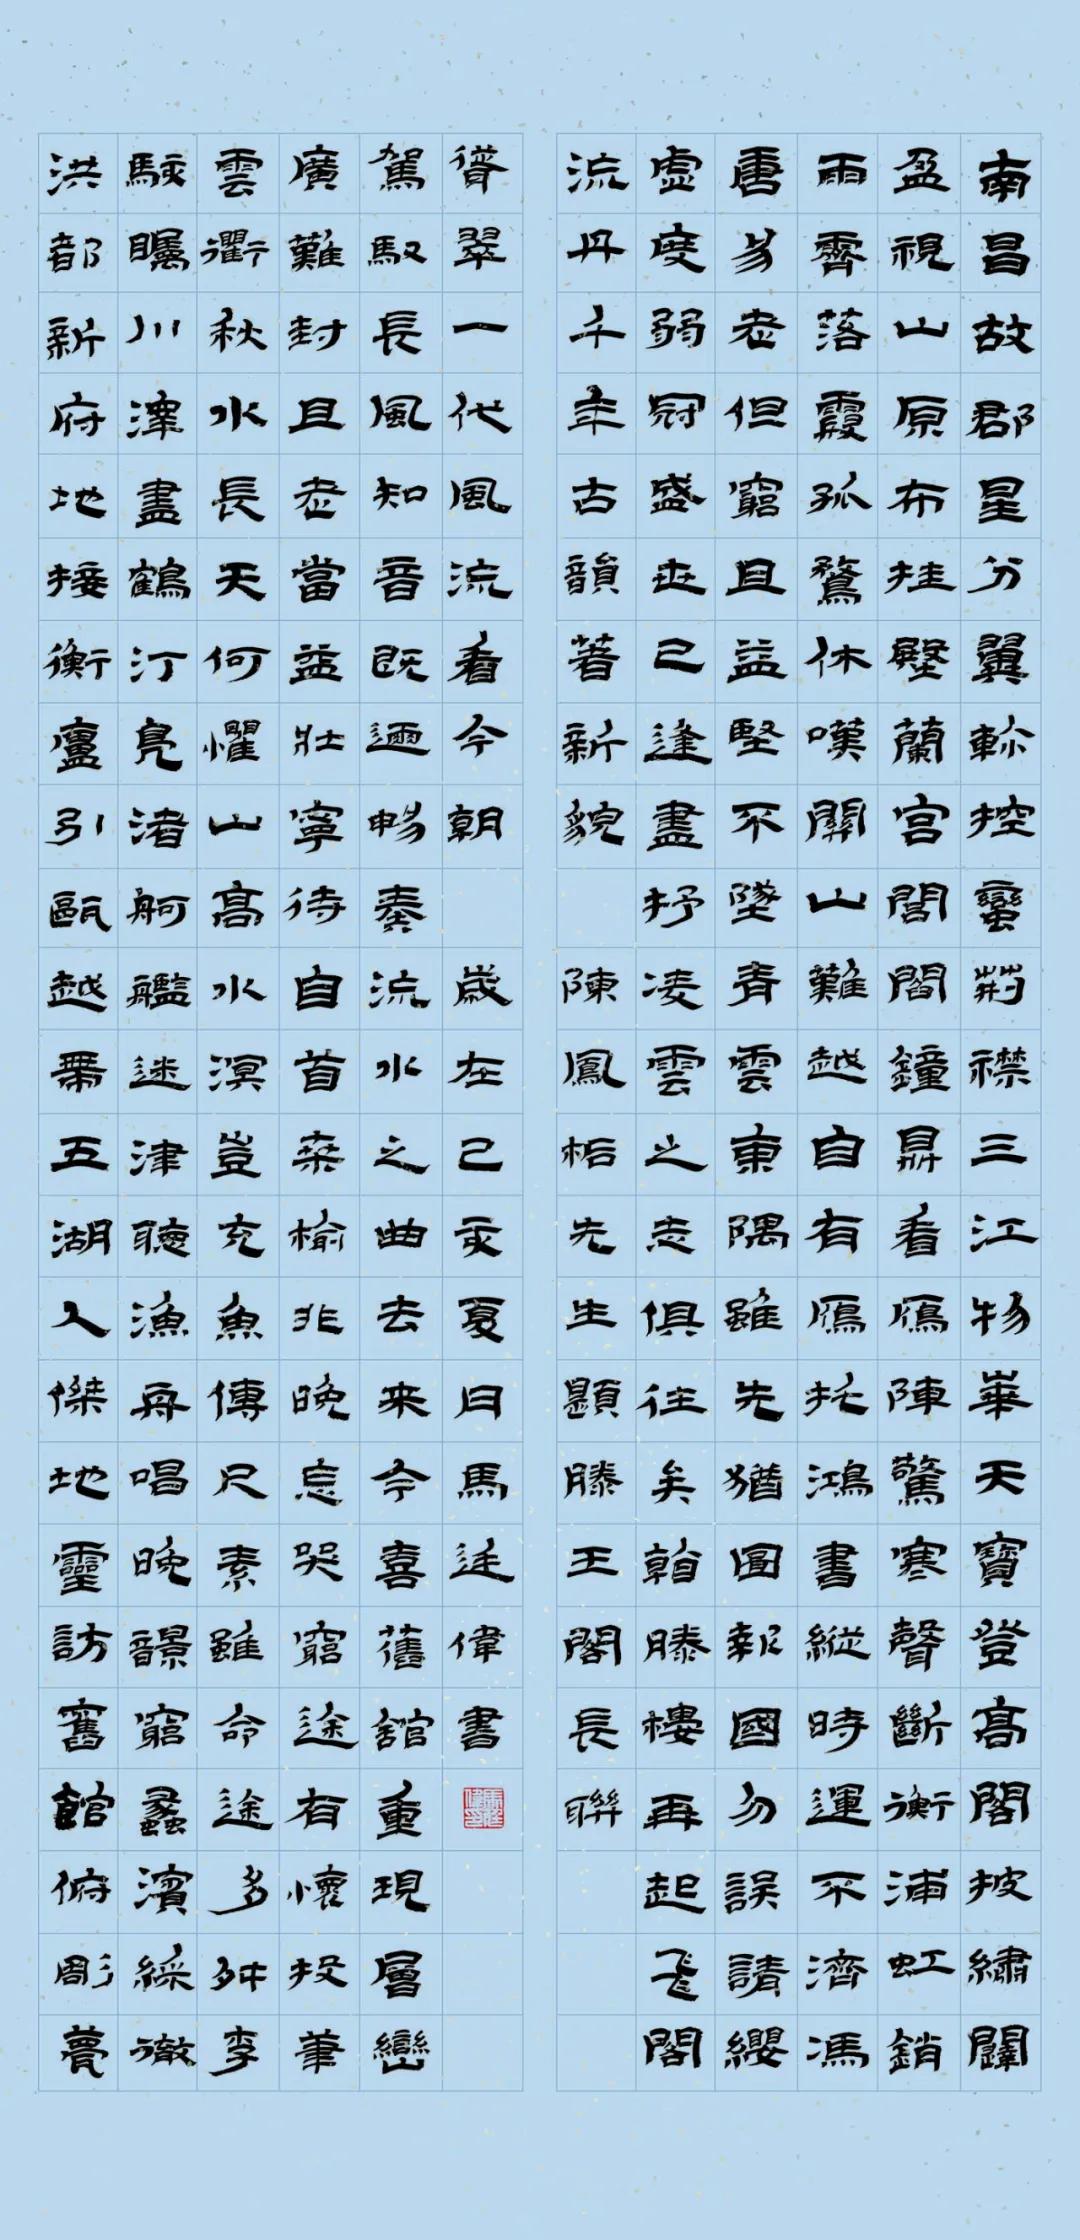 南昌故郡星分翼軫控蠻荊襟三江物華天寶登高閣披繡闥
盈視山原布桂殿蘭宮閭閻鐘鼎看鴈陣驚寒聲斷衡浦虹銷
雨霽落霞孤鶩休嘆關山難越自有鴈托鴻書縱時運不濟馮
唐易老但窮且益堅不墜青雲東隅雖先猶圖報國勿誤請纓
虛度弱冠盛世已逢盡抒凌雲之志俱往矣翰滕樓再起飛閣
流丹千年古韻著新貌
陳鳳栝先生題滕王閣長聯
洪都新府地接衡廬引甌越帶五湖人傑地靈訪舊館俯彫甍
駭矚川澤盡鶴汀鳧渚舸艦迷津聽漁舟唱晚韻窮蠡濱綵徹
雲衢秋水長天何懼山高水溟豈充魚傳尺素雖命途多舛李
廣難封且老當益壯寧待自首桑榆非晚忘哭窮途有懷投筆
駕馭長風知音既邇暢奏流水之曲去來今喜舊館重現層巒
聳翠一代風流看今朝
歲在己亥夏日馬廷偉書